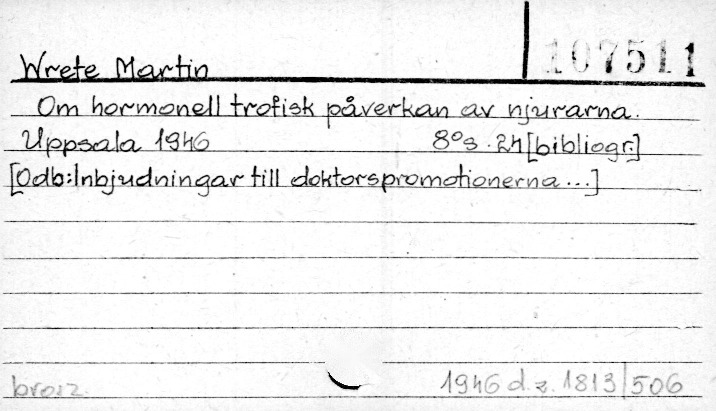 107511
Wrete Martin
Om hormonell trofisk påverkan av njurarna.
Uppsala 1946 8° s. 24 [bibliogr.]
[Odb: Inbjudningar till doktorspromotionerna...]
brosz. 1946 d. z. 1813/506